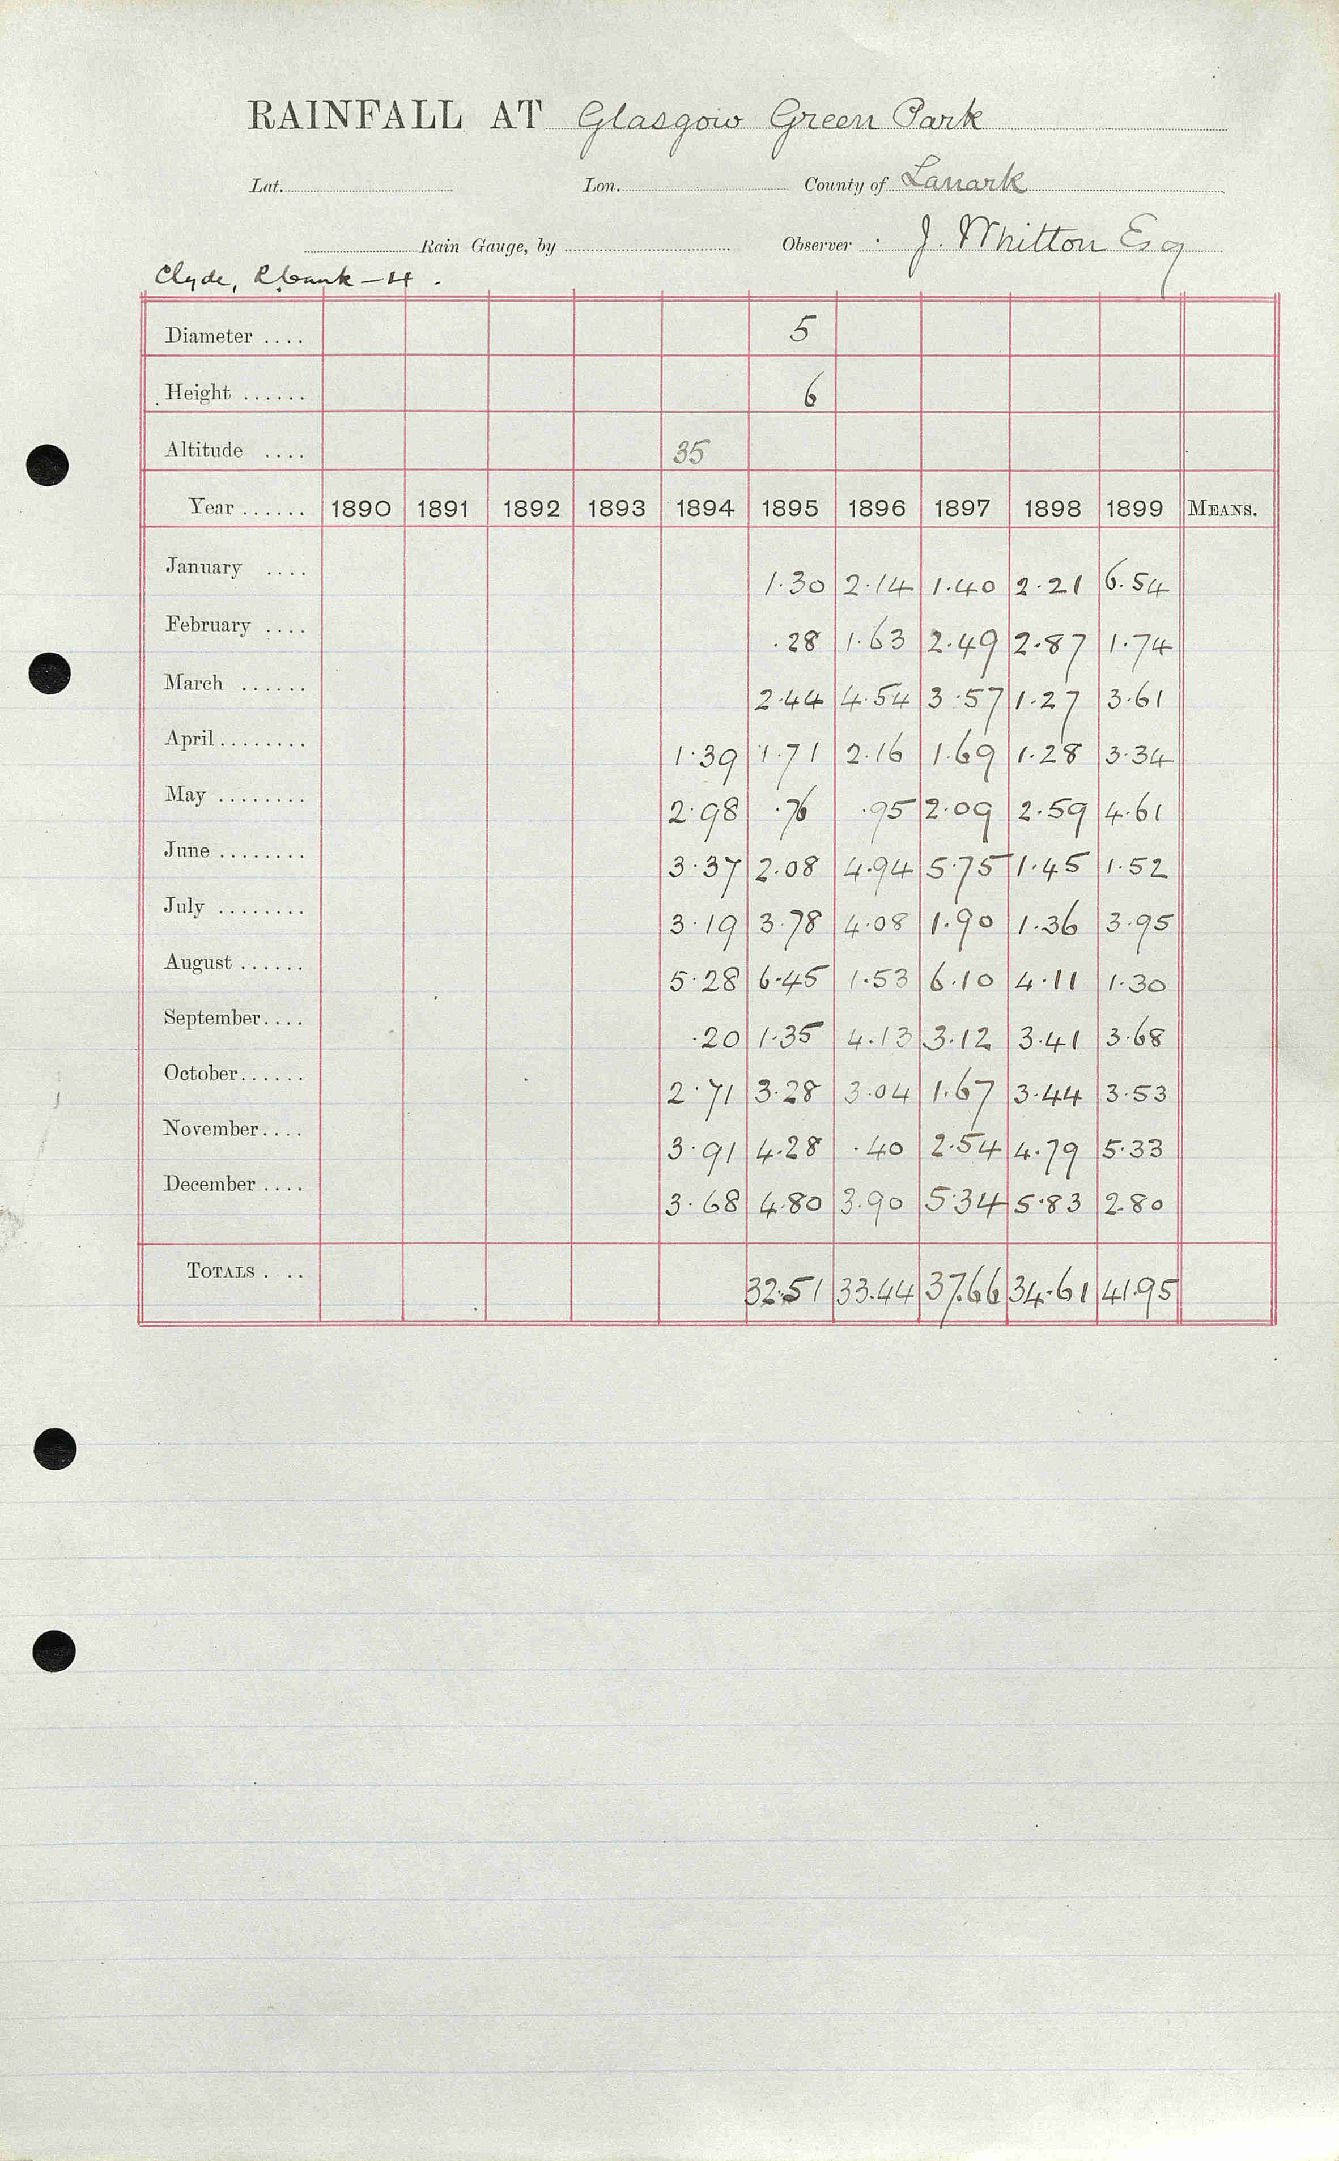 RAINFALL AT Glasgow Green Park
Lat. Lon. County of Lanark
Rain Gauge, by Observer J. Whitton Esq
Clyde, R. bank – 4.
Diameter .... 5
Height ...... 6
Altitude .... 35
Year ...... 1890 1891 1892 1893 1894 1895 1896 1897 1898 1899 MEANS.
January .... 1.30 2.14 1.40 2.21 6.54
February .... .28 1.63 2.49 2.87 1.74
March ...... 2.44 4.54 3.57 1.27 3.61
April ........ 1.39 1.71 2.16 1.69 1.28 3.34
May ........ 2.98 .76 .95 2.09 2.59 4.61
June ........ 3.37 2.08 4.94 5.75 1.45 1.52
July ........ 3.19 3.78 4.08 1.90 1.36 3.95
August ...... 5.28 6.45 1.53 6.10 4.11 1.30
September.... .20 1.35 4.13 3.12 3.41 3.68
October...... 2.71 3.28 3.04 1.67 3.44 3.53
November.... 3.91 4.28 .40 2.54 4.79 5.33
December .... 3.68 4.80 3.90 5.34 5.83 2.80
TOTALS . .. 32.51 33.44 37.66 34.61 41.95